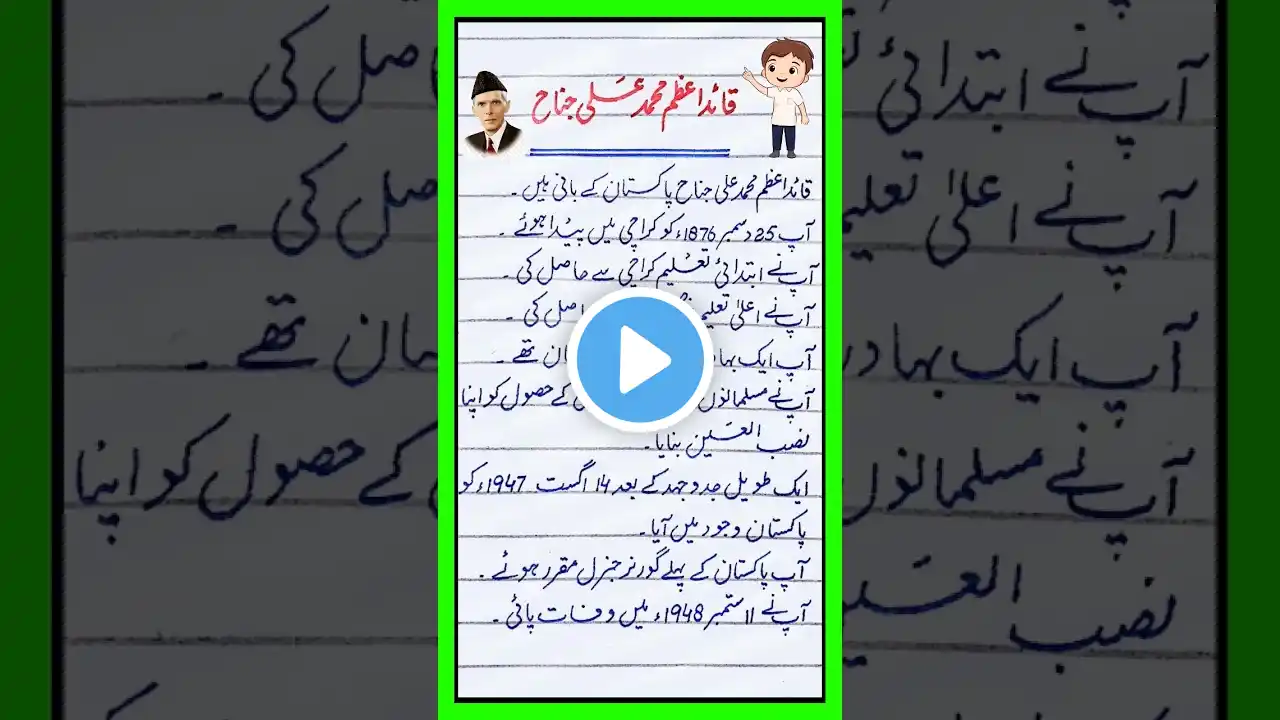 قائداعظم محمد علی جناح
قائداعظم محمد علی جناح پاکستان کے بانی ہیں۔
آپ 25 دسمبر 1876ء کو کراچی میں پیدا ہوئے۔
آپ نے ابتدائی تعلیم کراچی سے حاصل کی۔
آپ نے اعلیٰ تعلیم حاصل کی۔
آپ ایک بہادر تھے۔
آپ نے مسلمانوں کے حصول کو اپنا
نصب العین بنایا۔
ایک طویل جدوجہد کے بعد 14 اگست 1947ء کو
پاکستان وجود میں آیا۔
آپ پاکستان کے پہلے گورنر جنرل مقرر ہوئے۔
آپ نے 11 ستمبر 1948ء میں وفات پائی۔